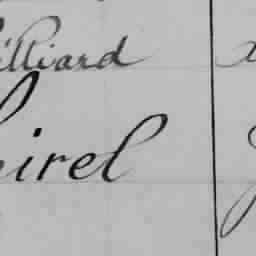 illiard
irel